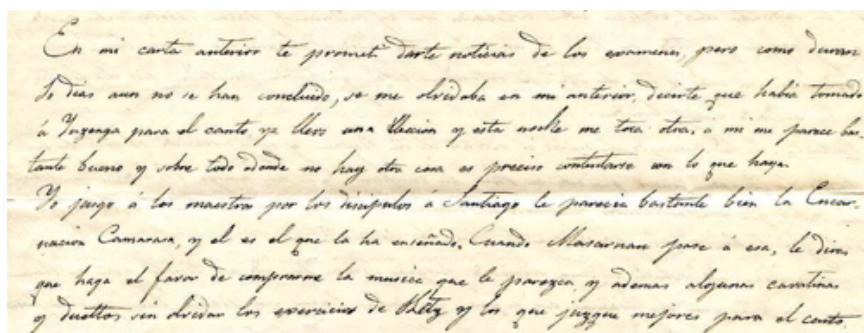 En mi carta anterior te prometí darte noticias de los examenes, pero como duran
dias aun no se han concluido, se me olvidaba en mi anterior, decirte que habia tomado
á Ynzenga para el canto, ya llevo una lleccion y esta noche me toca otra, a mi me parece bas-
tante bueno y sobre todo adonde no hay otra cosa es preciso contentarse con lo que haya.
Yo juzgo á los maestros por los discipulos á Santiago le parecia bastante bien la Encar-
nacion Camarasa, y el es el que la ha enseñado. Cuando pase á esa, le diras
que haga el favor de comprarme la musica que le parezca, y ademas algunas cavatinas
y duettos sin olvidar los exercicios de y los que juzgue mejores para el canto